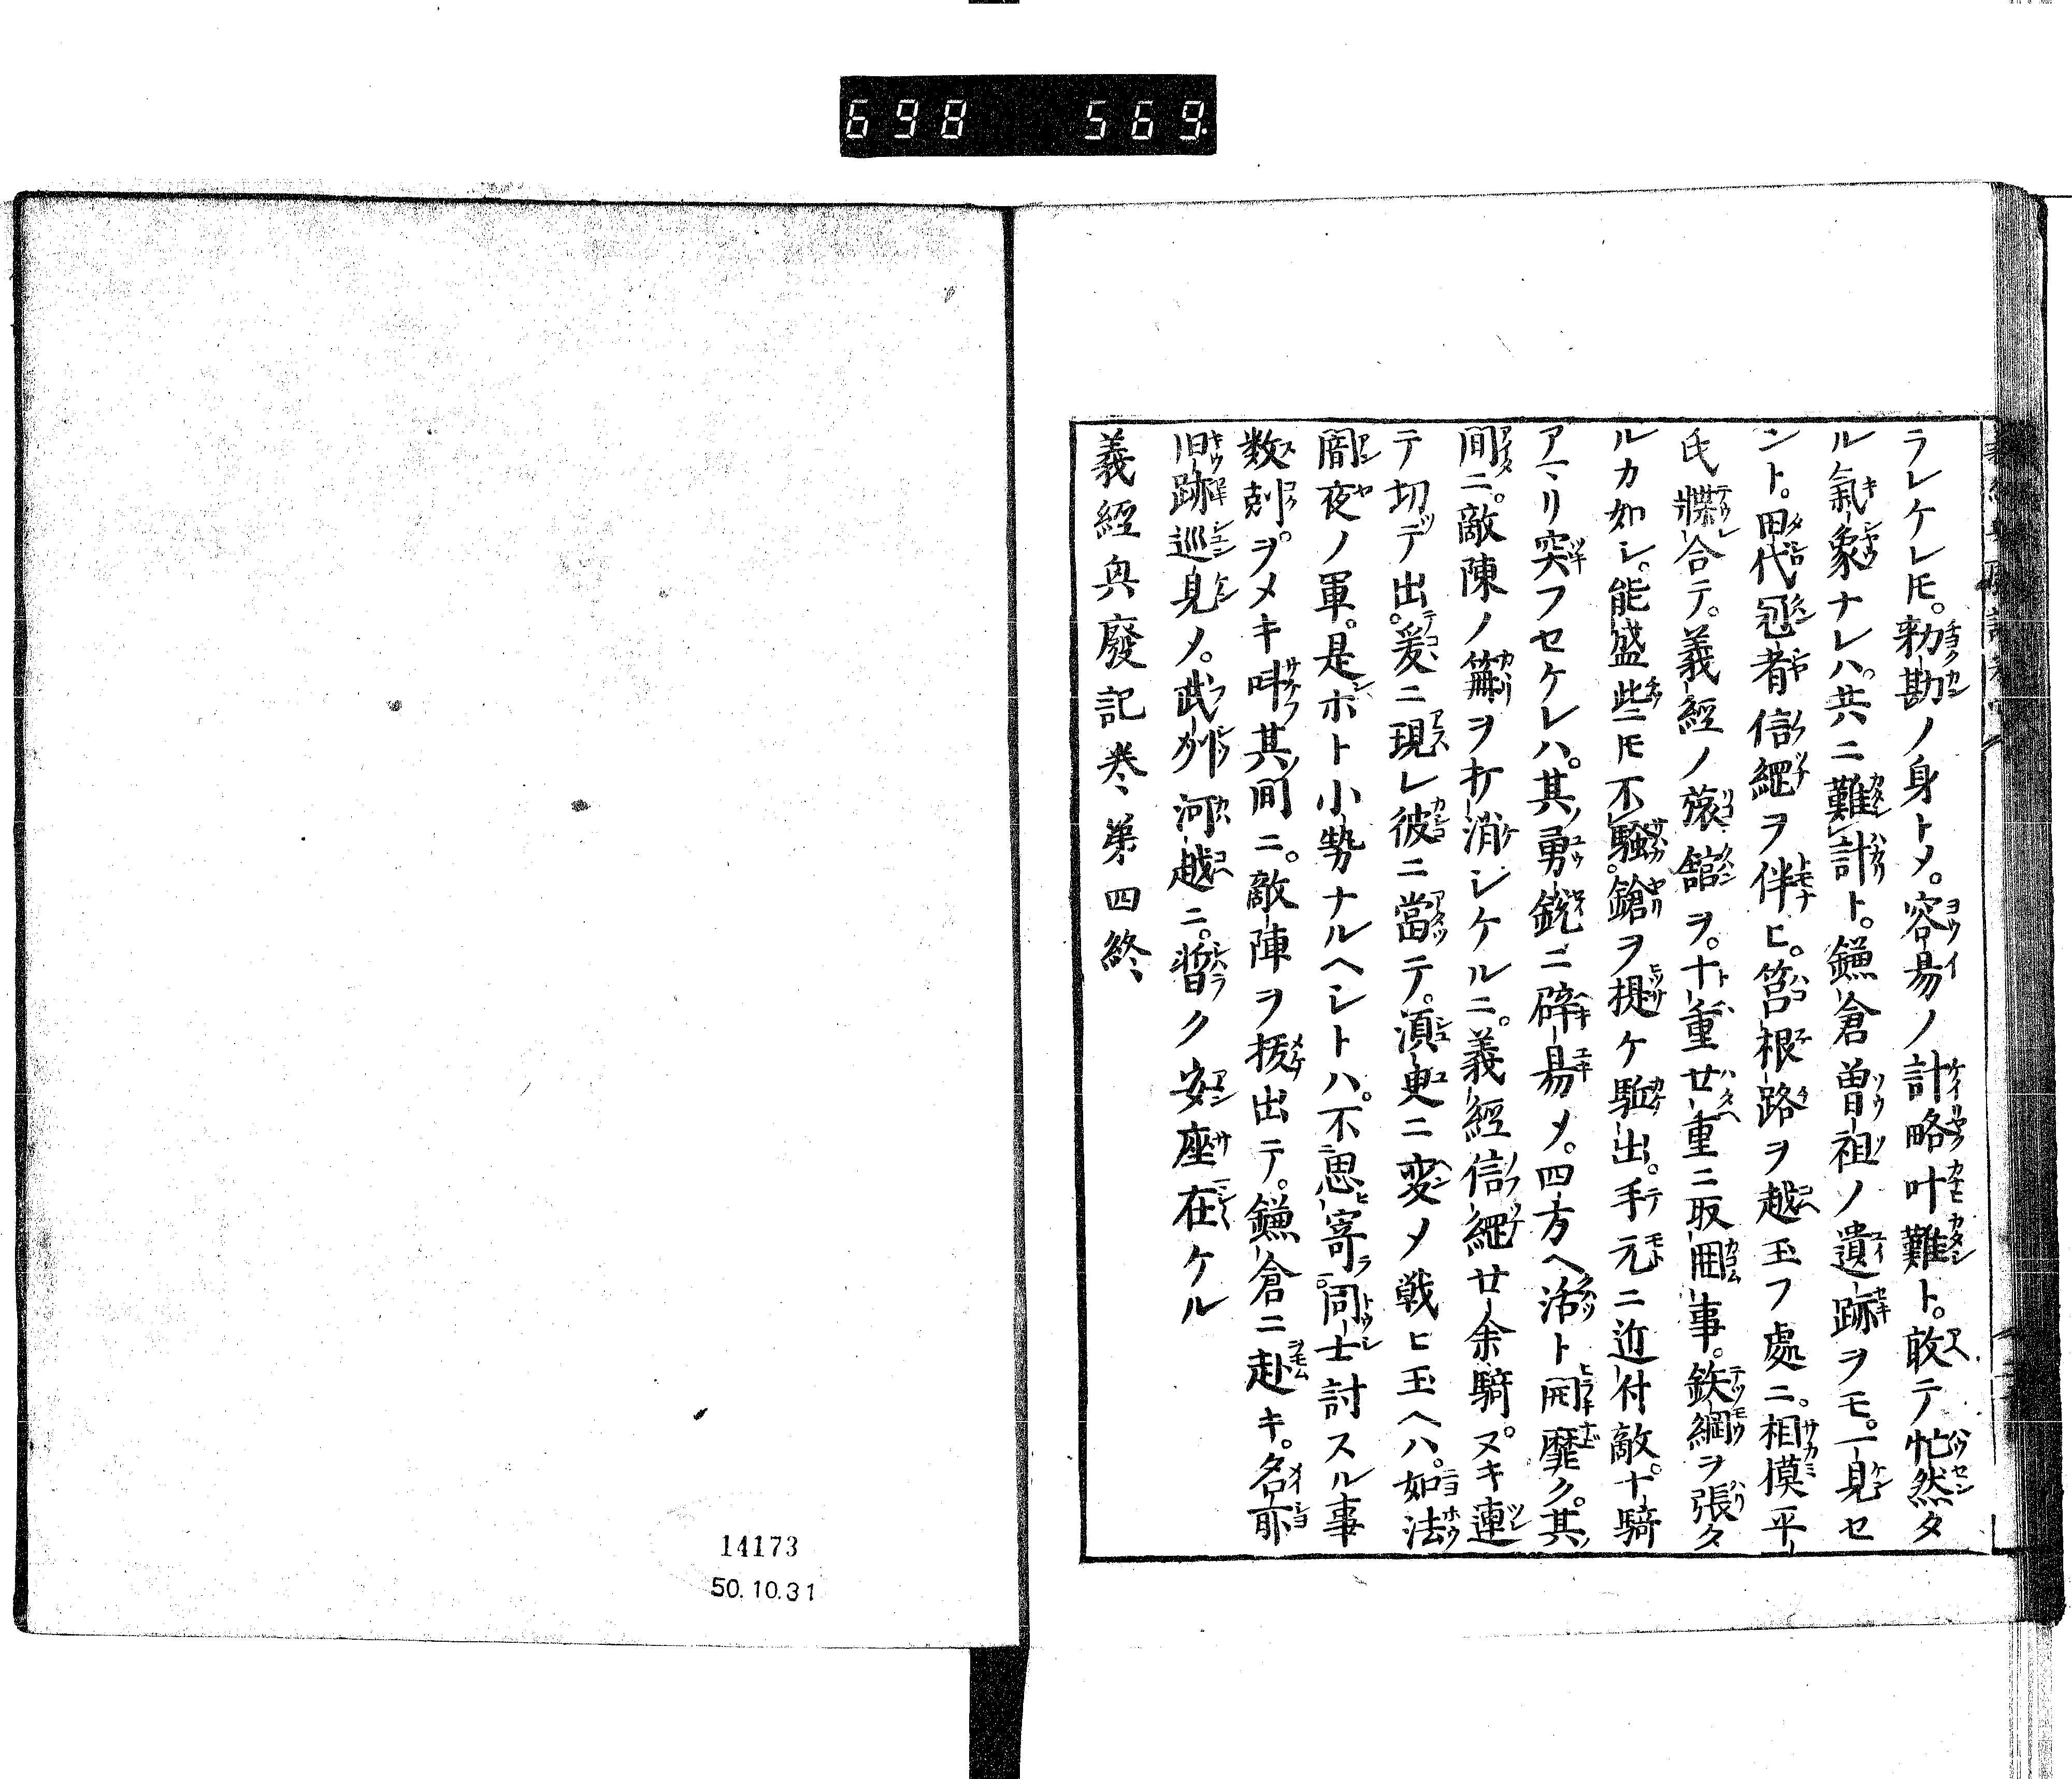 698 569
ラレケレ𪜈。勅勘ノ身トメ。容易ノ計略叶難ト。敢テ忙然タ
ル氣象ナレハ。共ニ難計ト。鎌倉曽祖ノ遺跡ヲモ。一見セ
ント。田代冠者信綱ヲ伴ヒ。筥根路ヲ越玉フ處ニ。相模平
氏牒合テ。義經ノ旅舘ヲ。十重廿重ニ取囲事。鉄網ヲ張タ
ルカ如シ。能盛些ニ𪜈不騒。鎗ヲ提ケ駈出。手元ニ近付敵。十騎
アマリ突フセケレハ。其勇鋭ニ碎易メ。四方ヘ活ト開靡ク。其
間ニ。敵陳ノ篝ヲ打消シケルニ。義經信綱廿余騎。ヌキ連
テ切デ出。爰ニ現レ彼ニ當テ。須臾ニ変メ戦ヒ玉ヘハ。如法
闇夜ノ軍。是ホト小勢ナルヘシトハ。不思寄。同士討スル事
数刻。ヲメキ叫其間ニ。敵陣ヲ拔出テ。鎌倉ニ赴キ。名所
旧跡巡見ノ。武州河越ニ。暫ク安座在ケル
義經興廢記巻第四終
14173
50.10.31